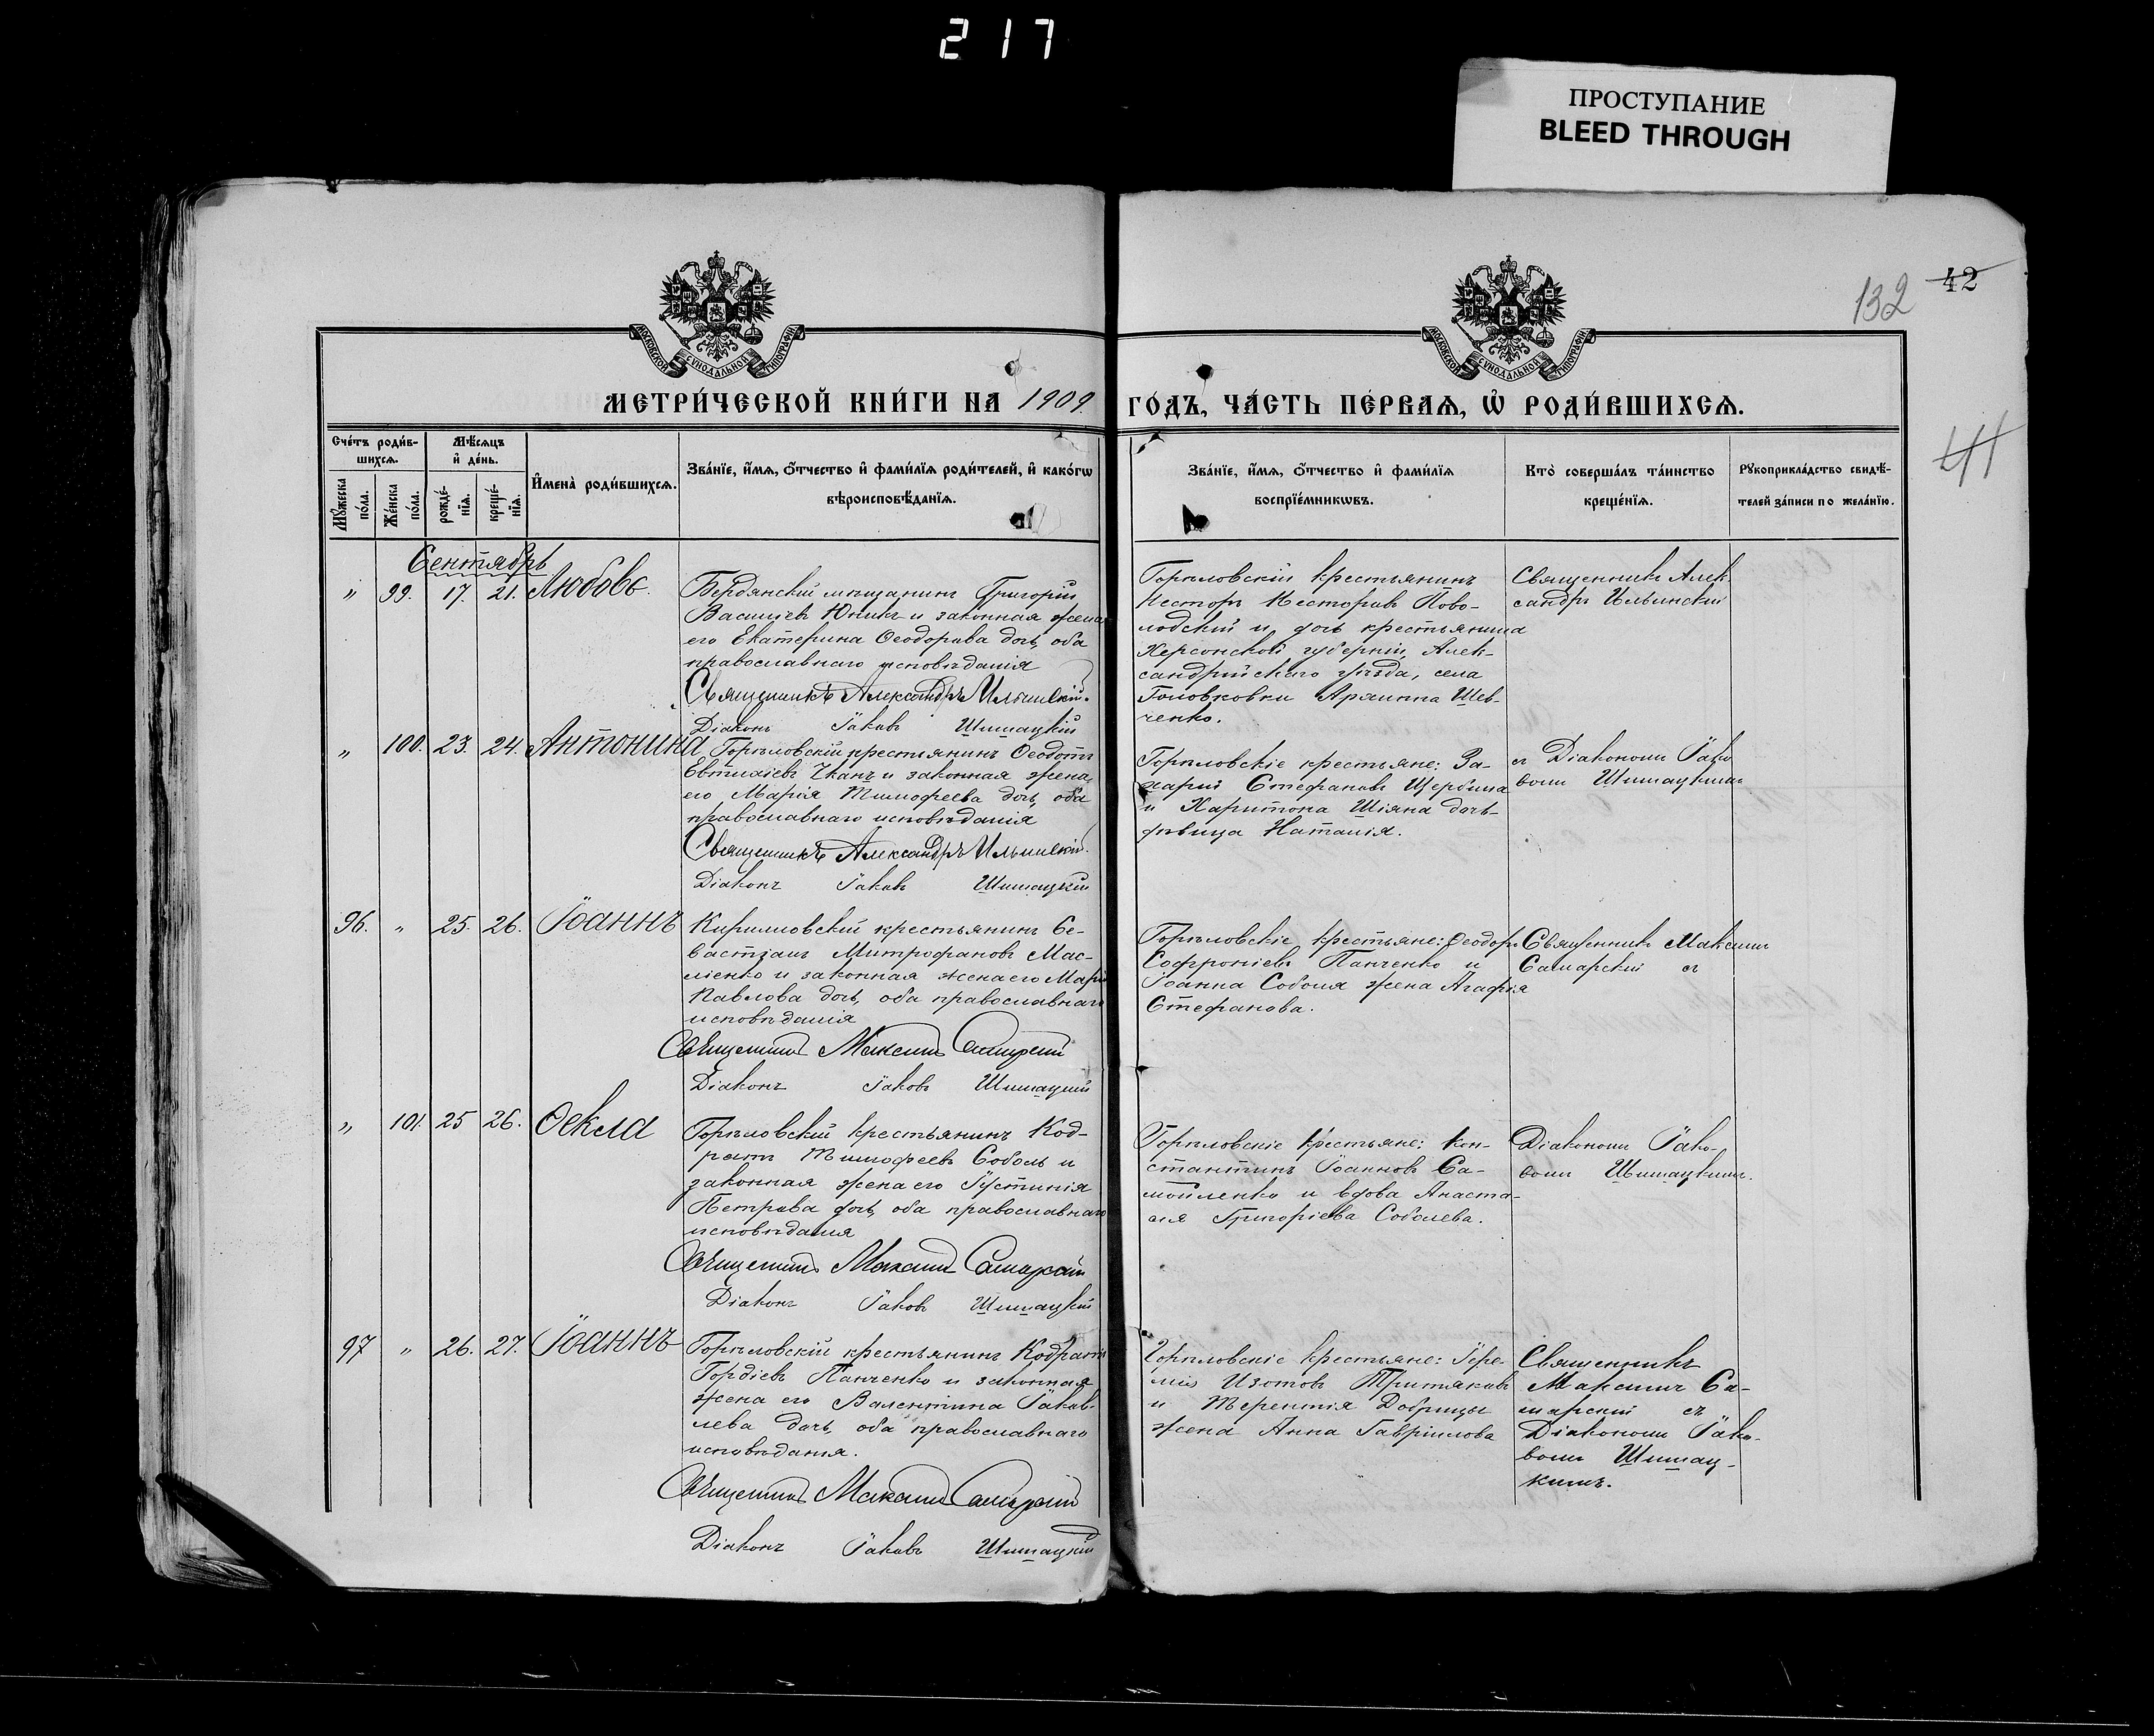 217
ПРОСТУПАНИЕ
BLEED THROUGH
132 42
41
МОСКОВСКОЙ СѴНОДАЛЬНОЙ ТИПОГРАФІИ
МОСКОВСКОЙ СѴНОДАЛЬНОЙ ТИПОГРАФІИ
МЕТРИ́ЧЕСКОЙ КНИ́ГИ НА 1909 ГО́ДЪ, ЧА́СТЬ ПЕ́РВАѦ, Ѡ҆ РОДИ́ВШИХСѦ.
Сче́тъ роди́в-
шихсѧ.
Мѣ́сѧцъ
и҆ де́нь.
И҆мена̀ роди́вшихсѧ.
Зва́нїе, и҆́мѧ, ѻ҆́тчество и҆ фами́лїѧ роди́телей, и҆ како́гѡ
вѣроисповѣ́данїѧ.
Зва́нїе, и҆́мѧ, ѻ҆́тчество и҆ фами́лїѧ
воспрїе́мникѡвъ.
Кто̀ соверша́лъ та́инство
креще́нїѧ.
Рꙋкоприкла́дство свидѣ́-
телей за́писи по жела́нїю.
Мꙋ́жеска
по́ла.
Же́нска
по́ла.
рожде́-
нїѧ.
креще́-
нїѧ.
Сентябрь
" 99. 17. 21. Любовь.
Бердянскій мѣщанинъ Григорій
Васильевъ и законная жена
его Екатерина Ѳеодорова дочь, оба
православнаго исповѣданія
Священникъ Александръ Ильинскій.
Діаконъ Іаковъ Шимацкій
Горѣловскій крестьянинъ
Несторъ Несторовъ Ново-
лодскій и дочь крестьянина
Херсонской губерніи, Алек-
сандрійскаго уѣзда, села
Головковки Аріянна Шев-
ченко.
Священникъ Алек-
сандръ Ильинскій
" 100. 23. 24. Антонина
Горѣловскій крестьянинъ Ѳеодотъ
Евтихіевъ и законная жена
его Марія Тимофеева дочь, оба
православнаго исповѣданія
Священникъ Александръ Ильинскій.
Діаконъ Іаковъ Шимацкій
Горѣловскіе крестьяне: За-
харій Стефановъ Щербина
и Харитона Шіяна дочь-
дѣвица Наталія.
съ Діакономъ Іако-
вомъ Шимацкимъ
96. " 25. 26. Іоаннъ
Кирилловскій крестьянинъ Се-
вастіанъ Митрофановъ Мас-
ленко и законная жена его Марія
Павлова дочь, оба православнаго
исповѣданія
Священникъ Максимъ Самарскій
Діаконъ Іаковъ Шимацкій
Горѣловскіе крестьяне: Ѳеодоръ
Софроніевъ Панченко и
Іоанна Соболя жена Агафія
Стефанова.
Священникъ Максимъ
Самарскій съ
" 101. 25 26. Ѳекла
Горѣловскій крестьянинъ Код-
ратъ Тимофеевъ Соболь и
законная жена его Іустинія
Петрова дочь, оба православнаго
исповѣданія
Священникъ Максимъ Самарскій
Діаконъ Іаковъ Шимацкій
Горѣловскіе крестьяне: Кон-
стантинъ Іоанновъ Са-
мойленко и вдова Анаста-
сія Григоріева Соболева.
Діакономъ Іако-
вомъ Шимацкимъ.
97 " 26. 27. Іоаннъ
Горѣловскій крестьянинъ Кодратъ
Гордіевъ Панченко и законная
жена его Валентина Іаков-
лева дочь, оба православнаго
исповѣданія.
Священникъ Максимъ Самарскій
Діаконъ Іаковъ Шимацкій
Горѣловскіе крестьяне: Іере-
мія Изотовъ Третьяковъ
и Терентія Добрицы
жена Анна Гавріилова
Священникъ
Максимъ Са-
марскій съ
Діакономъ Іако-
вомъ Шимац-
кимъ.